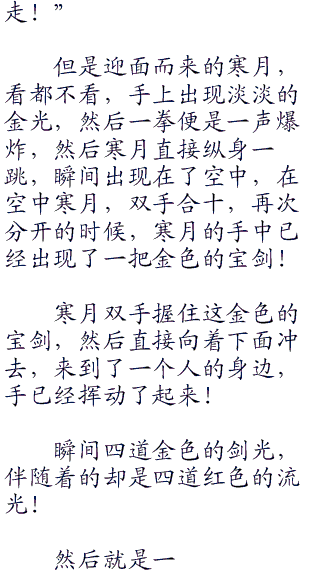 走！”
但是迎面而来的寒月，
看都不看，手上出现淡淡的
金光，然后一拳便是一声爆
炸，然后寒月直接纵身一
跳，瞬间出现在了空中，在
空中寒月，双手合十，再次
分开的时候，寒月的手中已
经出现了一把金色的宝剑！
寒月双手握住这金色的
宝剑，然后直接向着下面冲
去，来到了一个人的身边，
手已经挥动了起来！
瞬间四道金色的剑光，
伴随着的却是四道红色的流
光！
然后就是一